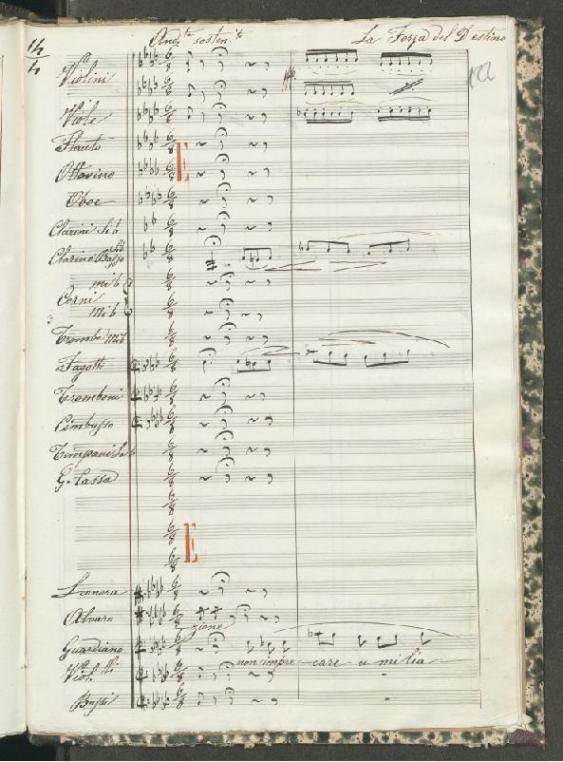 14
4
And.te sosten.to La Forza del Destino
122
Violini
Viole
Flauto
E
Ottavino
Oboe
Clarini Sib
Clarino Basso Sib
mib
Corni
mib
Trombe mib
Fagotti
Tromboni
Cimbasso
Timpani
G. Cassa
E
Leonora
Alvaro
zione
Guardiano
non impre - care u milia
Viol.lli
Bassi